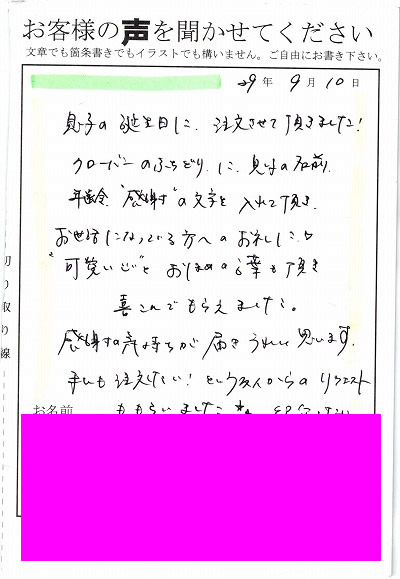 お客様の声を聞かせてください
文章でも箇条書きでもイラストでも構いません。ご自由にお書き下さい。
29年 9月 10日
息子の誕生日に、注文させて頂きました!
クローバーのふちどりに、息子の名前、
年齢、"感謝"の文字を入れて頂き、
お世話になっている方へのお礼に、
"可愛い♡"とおほめの言葉も頂き
喜こんでもらえました。
感謝の気持ちが届きうれしく思います。
注文したい!という友人からのリクエスト
ももらいました
お名前
切り取り線